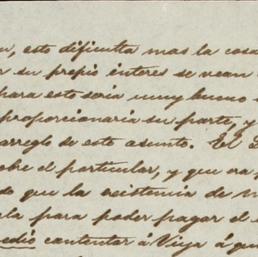 esto dificulta mas la cosa
su propio interes se vean
esto seria muy bueno
proporcionaria su parte, y
arreglo de este asunto. El
el particular, y que
que la existencia de
para poder pagar el
contentar á Viya á